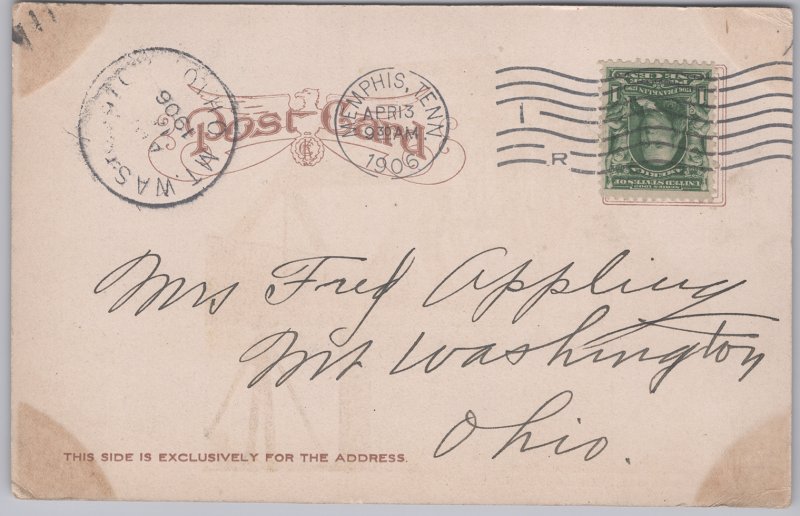 Post Card
MT. WASHINGTON OHIO
1906
MEMPHIS, TENN.
APR 13
930 AM
1906
1
R
ONE CENT
1706 FRANKLIN 1790
1 1
SERIES 1902
UNITED STATES OF
AMERICA
Mrs Fred Appling
Mt Washington
Ohio.
THIS SIDE IS EXCLUSIVELY FOR THE ADDRESS.